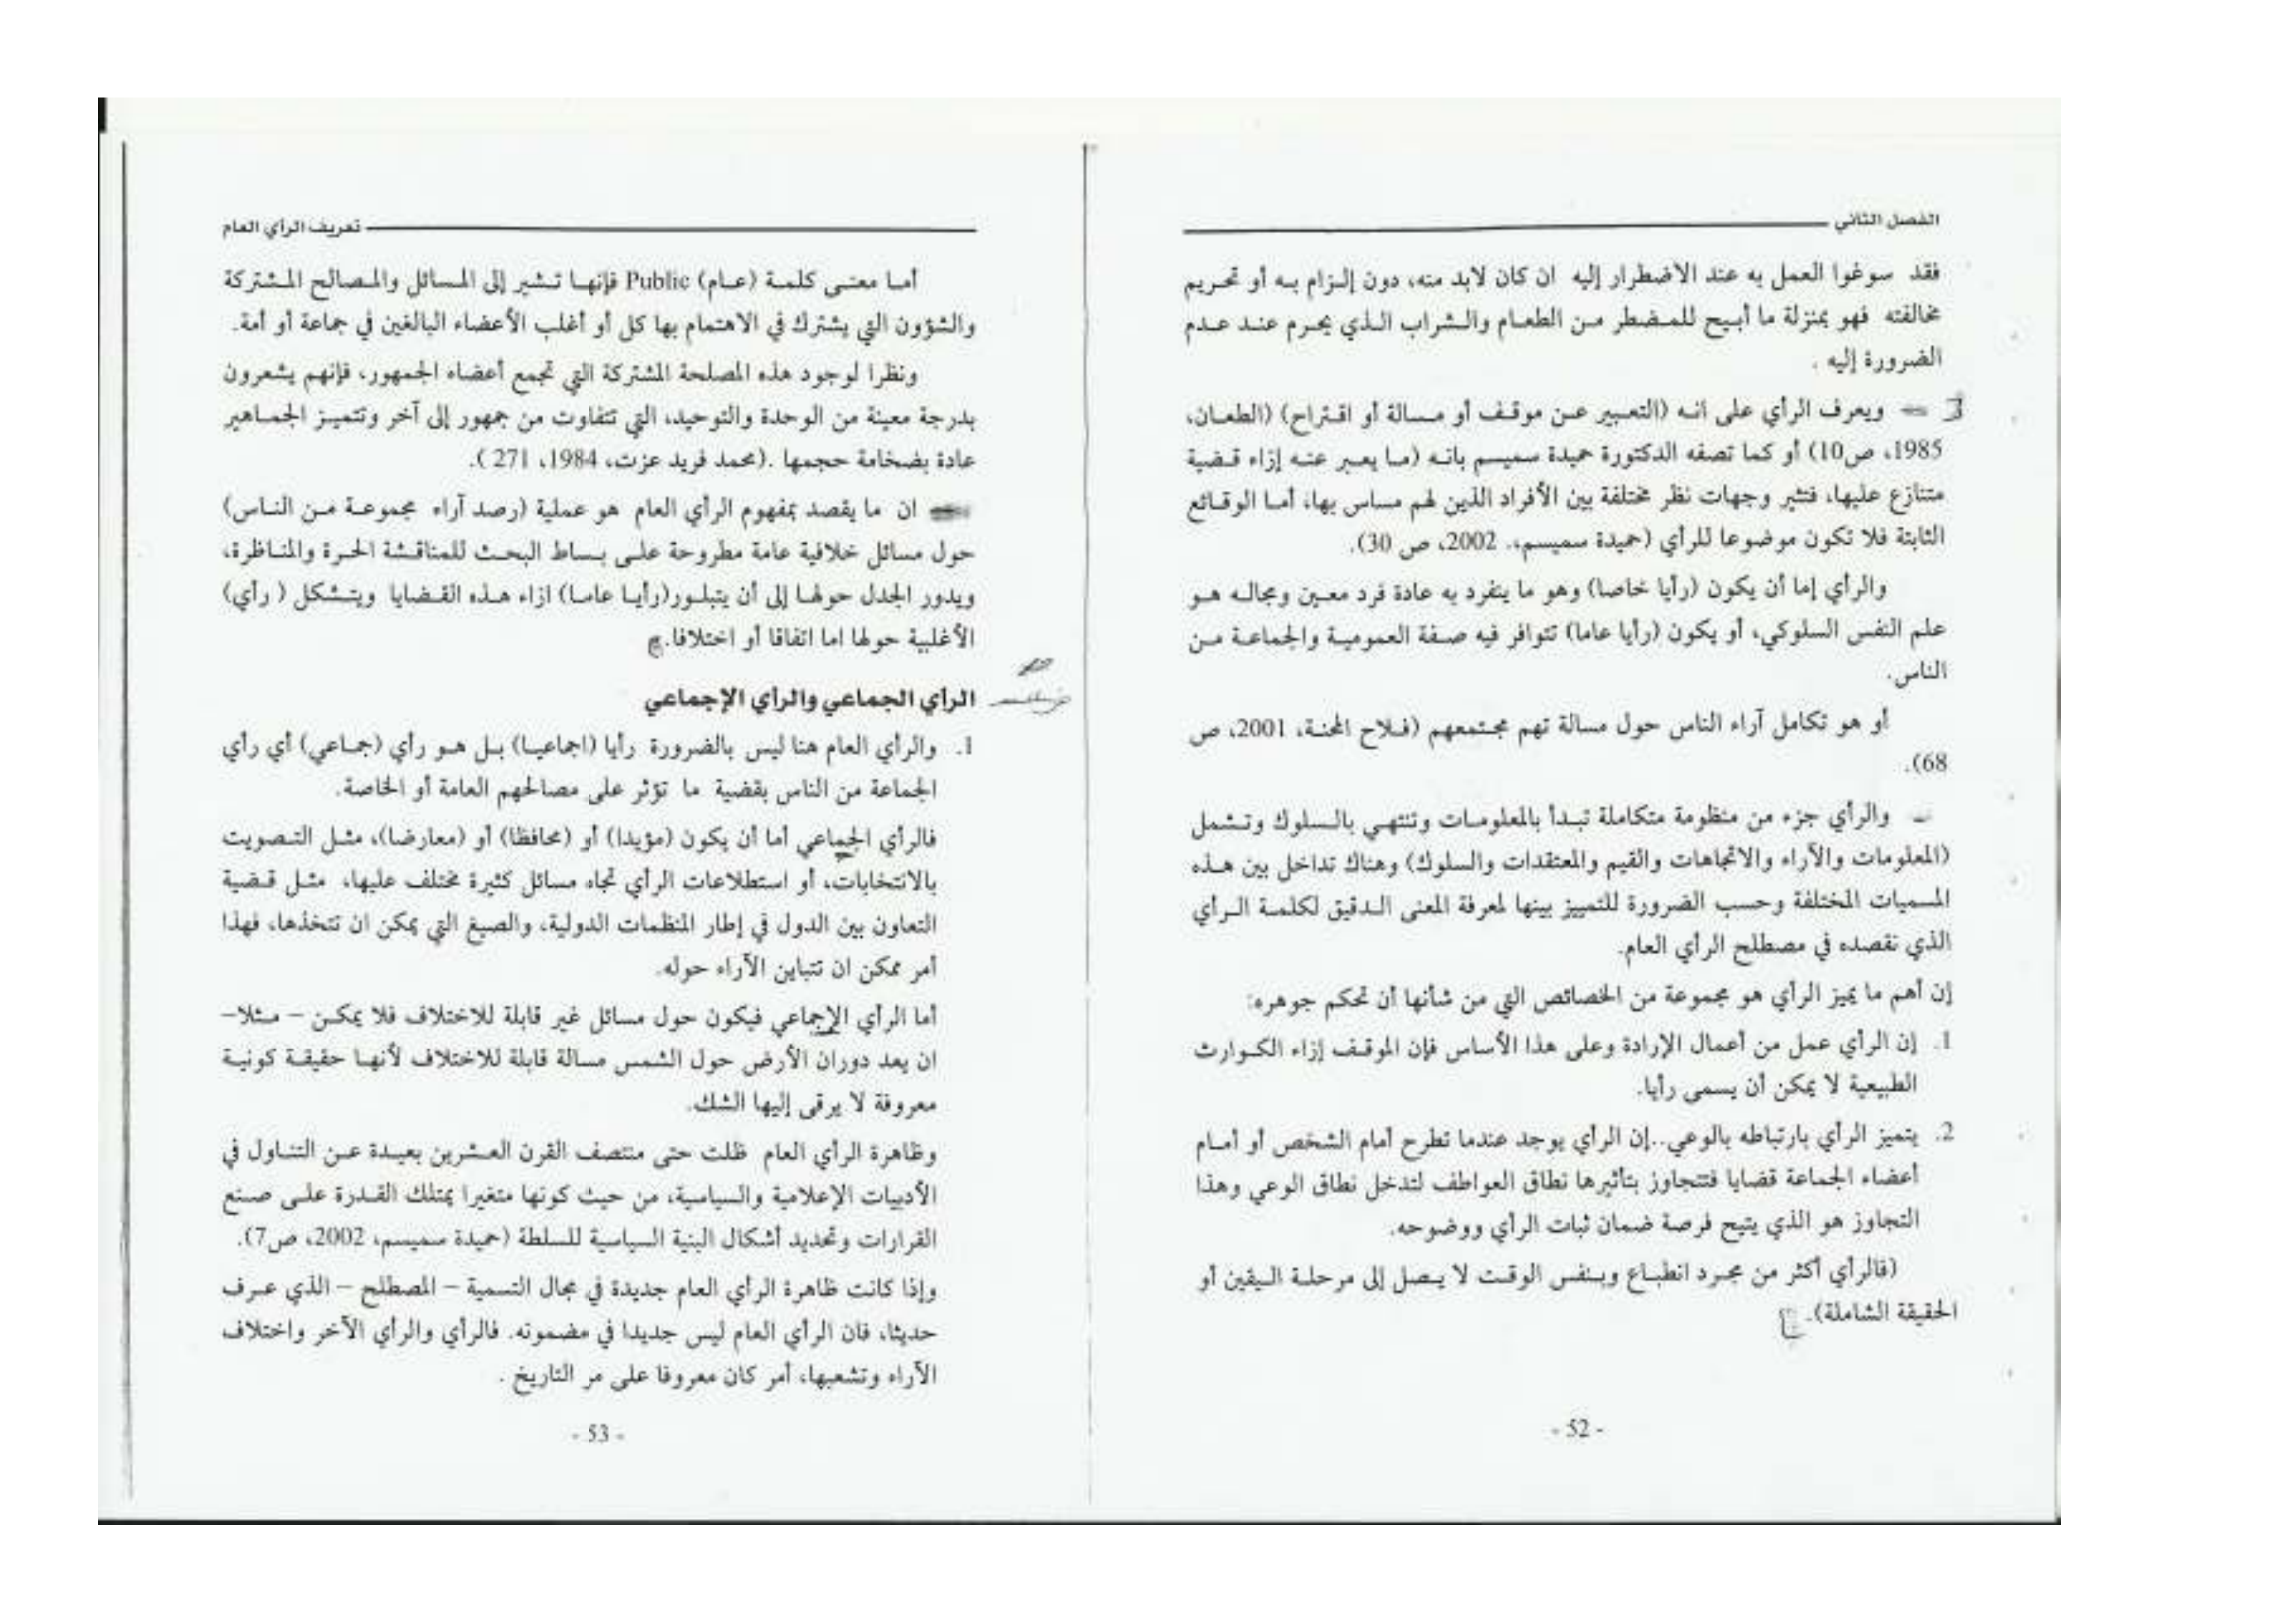 الفصل الثاني
فقد سوغوا العمل به عند الاضطرار إليه ان كان لابد منه، دون إلزام به أو تحريم
مخالفته فهو بمنزلة ما أبيح للمضطر من الطعام والشراب الذي يحرم عند عدم
الضرورة إليه .
ويعرف الرأي على انه (التعبير عن موقف أو مسالة أو اقتراح) (الطعان،
1985، ص10) أو كما تصفه الدكتورة حميدة سميسم بانه (ما يعبر عنه إزاء قضية
متنازع عليها، فتثير وجهات نظر مختلفة بين الأفراد الذين لهم مساس بها، أما الوقائع
الثابتة فلا تكون موضوعا للرأي (حميدة سميسم،. 2002، ص 30).
والرأي إما أن يكون (رأيا خاصا) وهو ما ينفرد به عادة فرد معين ومجاله هو
علم النفس السلوكي، أو يكون (رأيا عاما) تتوافر فيه صفة العمومية والجماعة من
الناس.
أو هو تكامل آراء الناس حول مسالة تهم مجتمعهم (فلاح المحنة، 2001، ص
68).
والرأي جزء من منظومة متكاملة تبدأ بالمعلومات وتنتهي بالسلوك وتشمل
(المعلومات والآراء والاتجاهات والقيم والمعتقدات والسلوك) وهناك تداخل بين هذه
المسميات المختلفة وحسب الضرورة للتمييز بينها لمعرفة المعنى الدقيق لكلمة الرأي
الذي نقصده في مصطلح الرأي العام.
إن أهم ما يميز الرأي هو مجموعة من الخصائص التي من شأنها أن تحكم جوهره:
1. إن الرأي عمل من أعمال الإرادة وعلى هذا الأساس فإن الموقف إزاء الكوارث
الطبيعية لا يمكن أن يسمى رأيا.
2. يتميز الرأي بارتباطه بالوعي..إن الرأي يوجد عندما تطرح أمام الشخص أو أمام
أعضاء الجماعة قضايا فتتجاوز بتأثيرها نطاق العواطف لتدخل نطاق الوعي وهذا
التجاوز هو الذي يتيح فرصة ضمان ثبات الرأي ووضوحه.
(فالرأي أكثر من مجرد انطباع وبنفس الوقت لا يصل إلى مرحلة اليقين أو
الحقيقة الشاملة).
- 52 -
تعريف الرأي العام
أما معنى كلمة (عام) Public فإنها تشير إلى المسائل والمصالح المشتركة
والشؤون التي يشترك في الاهتمام بها كل أو أغلب الأعضاء البالغين في جماعة أو أمة.
ونظرا لوجود هذه المصلحة المشتركة التي تجمع أعضاء الجمهور، فإنهم يشعرون
بدرجة معينة من الوحدة والتوحيد، التي تتفاوت من جمهور إلى آخر وتتميز الجماهير
عادة بضخامة حجمها .(محمد فريد عزت، 1984، 271 ).
ان ما يقصد بمفهوم الرأي العام هو عملية (رصد آراء مجموعة من الناس)
حول مسائل خلافية عامة مطروحة على بساط البحث للمناقشة الحرة والمناظرة،
ويدور الجدل حولها إلى أن يتبلور(رأيا عاما) ازاء هذه القضايا ويتشكل ( رأي)
الأغلبية حولها اما اتفاقا أو اختلافا.
الرأي الجماعي والرأي الإجماعي
1. والرأي العام هنا ليس بالضرورة رأيا (اجماعيا) بل هو رأي (جماعي) أي رأي
الجماعة من الناس بقضية ما تؤثر على مصالحهم العامة أو الخاصة.
فالرأي الجماعي أما أن يكون (مؤيدا) أو (محافظا) أو (معارضا)، مثل التصويت
بالانتخابات، أو استطلاعات الرأي تجاه مسائل كثيرة مختلف عليها، مثل قضية
التعاون بين الدول في إطار المنظمات الدولية، والصيغ التي يمكن ان تتخذها، فهذا
أمر ممكن ان تتباين الآراء حوله.
أما الرأي الإجماعي فيكون حول مسائل غير قابلة للاختلاف فلا يمكن – مثلا–
ان يعد دوران الأرض حول الشمس مسالة قابلة للاختلاف لأنها حقيقة كونية
معروفة لا يرقى إليها الشك.
وظاهرة الرأي العام ظلت حتى منتصف القرن العشرين بعيدة عن التناول في
الأدبيات الإعلامية والسياسية، من حيث كونها متغيرا يمتلك القدرة على صنع
القرارات وتحديد أشكال البنية السياسية للسلطة (حميدة سميسم، 2002، ص7).
وإذا كانت ظاهرة الرأي العام جديدة في مجال التسمية – المصطلح – الذي عرف
حديثا، فان الرأي العام ليس جديدا في مضمونه. فالرأي والرأي الآخر واختلاف
الآراء وتشعبها، أمر كان معروفا على مر التاريخ .
- 53 -